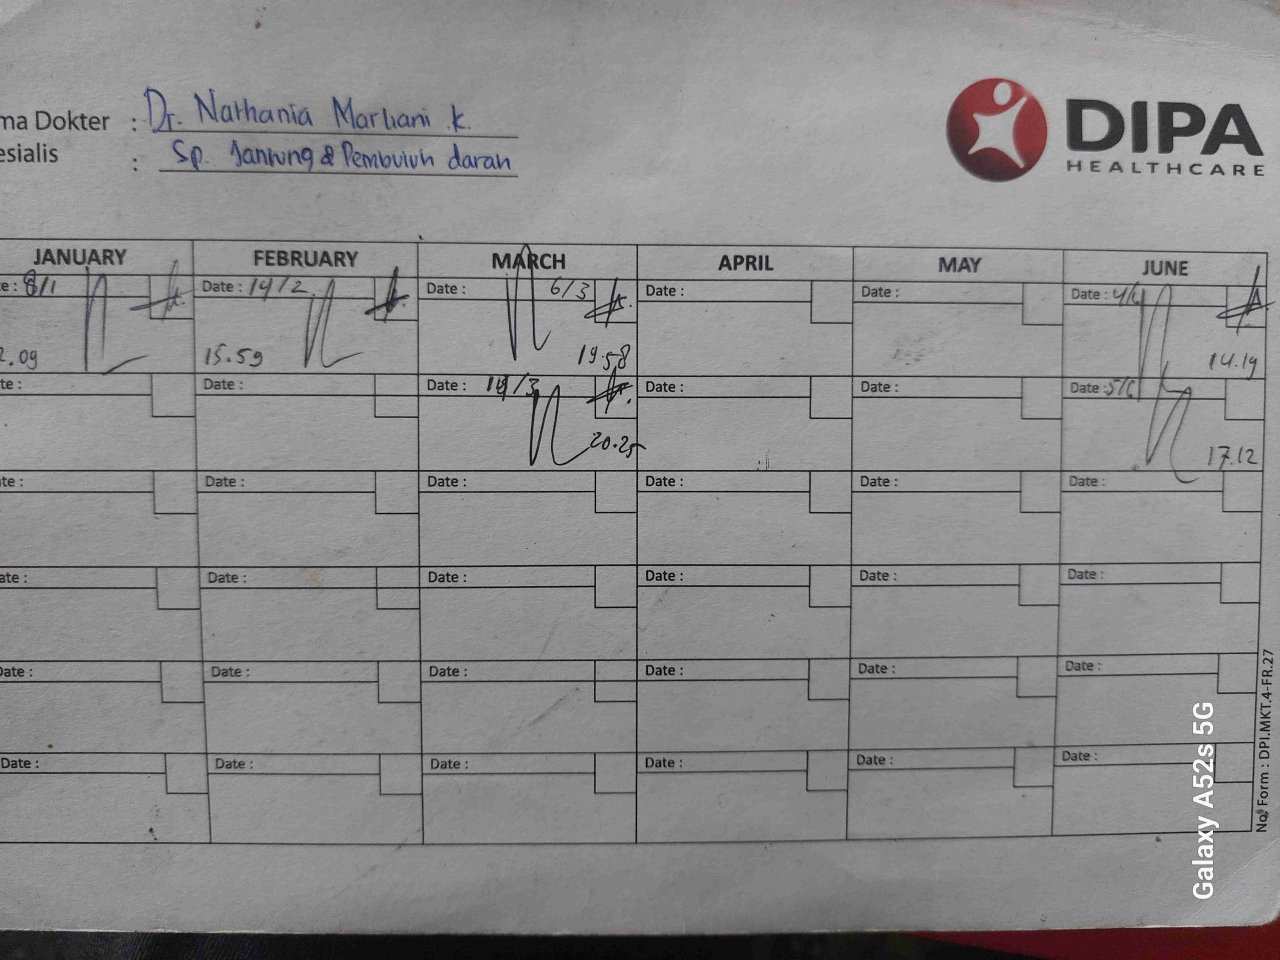 ma Dokter : Dr. Nathania Marliani .k.
esialis : Sp. Jantung & Pembuluh darah
DIPA
HEALTHCARE
JANUARY FEBRUARY MARCH APRIL MAY JUNE
e : 8/1 Date : 14/2 Date : 6/3 Date : Date : Date : 4/6
2.09 15.59 19.58 14.19
te : Date : Date : 14/3 Date : Date : Date : 5/6
20.25 17.12
te : Date : Date : Date : Date : Date :
ate : Date : Date : Date : Date : Date :
Date : Date : Date : Date : Date : Date :
Date : Date : Date : Date : Date : Date :
No. Form : DPI.MKT.4-FR.27
Galaxy A52s 5G